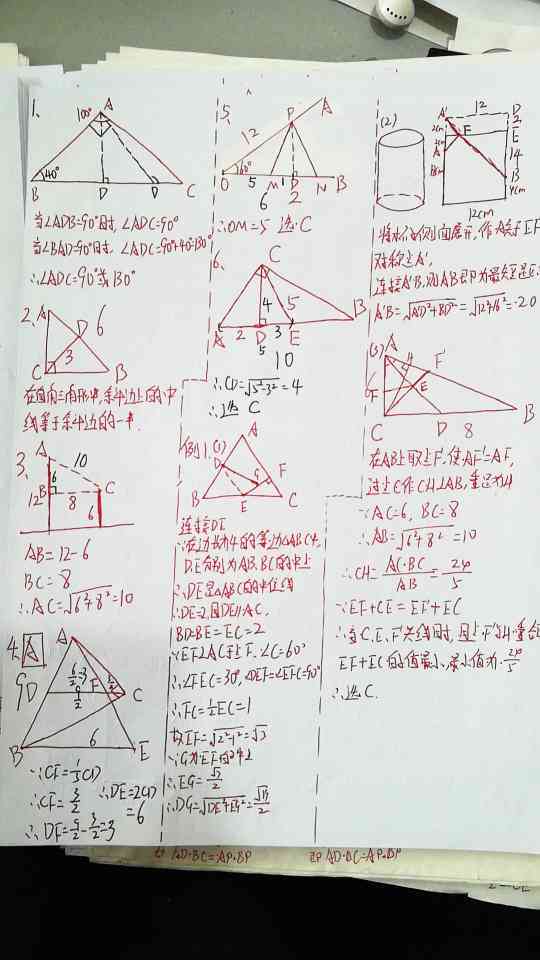 1、
100°
A
40°
B
D
D
C
当∠ADB=90°时,∠ADC=90°
当∠BAD=90°时,∠ADC=90°+40°=130°
∴∠ADC=90°或130°
2、
A
6
D
3
C
B
在直角三角形中,斜边上的中
线等于斜边的一半.
3、
A
10
6
12
B
8
C
6
AB=12-6
BC=8
∴AC=√6²+8²=10
4、
A
A
9
D
F
C
B
6
E
∵CF=1/3CD
∴CF=3/2
∴DE=2CD
=6
∴DF=9/2-3/2=3
5、
A
P
12
60°
O
5
M
1
D
N
B
6
2
∴OM=5 选C
6、
C
4
5
A
2
D
3
E
B
5
10
∴CD=√5²-3²=4
∴选 C
例1.(1)
A
D
G
F
B
E
C
连接DE
∵在边长为4的等边△ABC中,
D.E分别为AB.BC的中点
∴DE是△ABC的中位线
∴DE=2,且DE∥AC,
BD=BE=EC=2
∵EF⊥AC于点F,∠C=60°
∴∠FEC=30°,∠DEF=∠EFC=90°
∴FC=1/2EC=1
故EF=√2²-1²=√3
∵G为EF的中点
∴EG=√3/2
∴DG=√DE²+EG²=√19/2
(2)
A'
12
D
2
2cm
F
E
2cm
A
14
B
4cm
12cm
对称点A',
A'B=√A'D²+BD²=√12²+16²=20
(3)
A
F'
F
E
C
D
8
B
在AB上取点F',使AF'=AF,
过点C作CH⊥AB,垂足为H
∵AC=6, BC=8
∴AB=√6²+8²=10
∴CH=AC·BC/AB=24/5
∵EF+CE=EF'+EC
∴当C、E、F'共线时,且点F'与H重合
EF+EC的值最小,最小值为24/5
∴选C.
AD·BC=AP·BP
即AD·BC=AP·BP